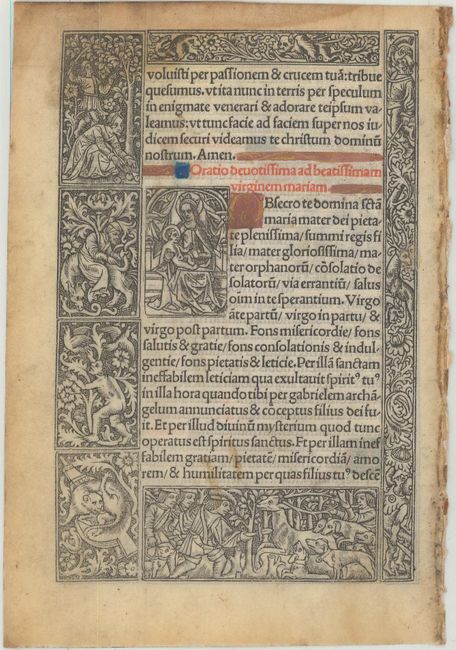 voluisti per passionem & crucem tuã: tribue
quesumus. vt ita nunc in terris per speculum
in enigmate venerari & adorare teipsum va-
leamus: vt tunc facie ad faciem super nos iu-
dicem securi videamus te christum dominũ
nostrum. Amen.
Oratio deuotissima ad beatissimam
virginem mariam.
OBsecro te domina sctã
maria mater dei pieta-
te plenissima/ summi regis fi
lia/ mater gloriosissima/ ma-
ter orphanorũ/ cõsolatio de
solatorũ/ via errantiũ/ salus
oĩm in te sperantium. Virgo
ãte partũ/ virgo in partu/ &
virgo post partum. Fons misericordie/ fons
salutis & gratie/ fons consolationis & indul-
gentie/ fons pietatis & leticie. Per illã sanctam
ineffabilem leticiam qua exultauit spiritꝰ tuꝰ
in illa hora quando tibi per gabrielem archã-
gelum annunciatus & cõceptus filius dei fu-
it. Et per illud diuinũ mysterium quod tunc
operatus est spiritus sanctus. Et per illam inef
fabilem gratiam/ pietatẽ/ misericordiã/ amo
rem/ & humilitatem per quas filius tuꝰ descẽ